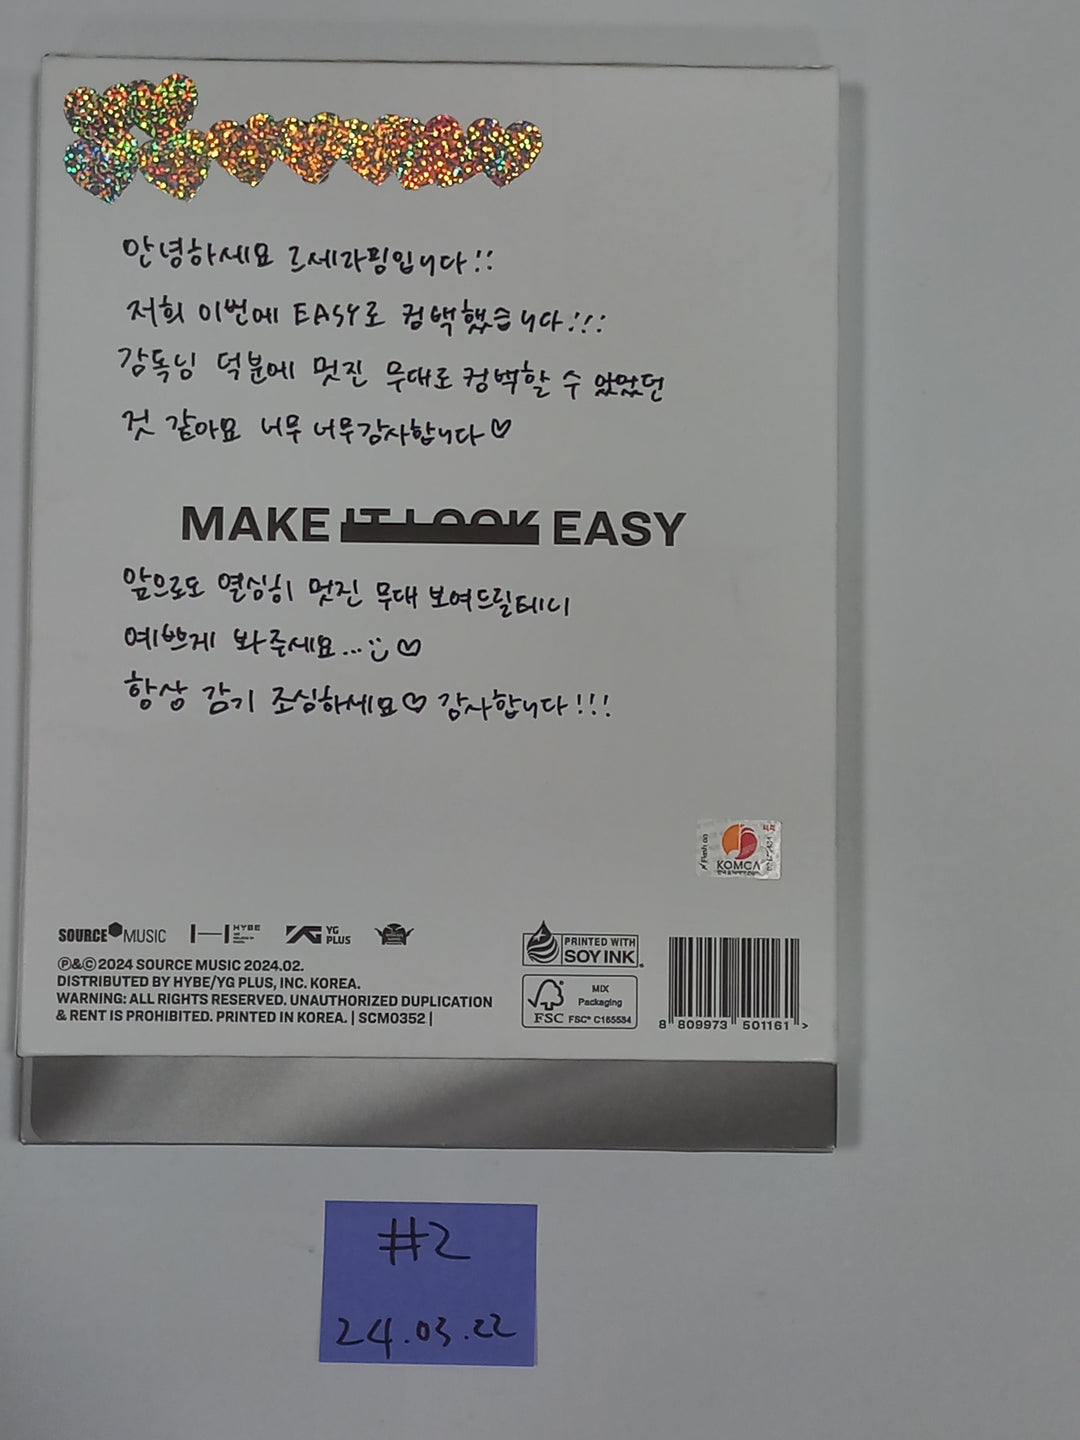 안녕하세요 르세라핌입니다!!
저희 이번에 EASY로 컴백했습니다!!!
감독님 덕분에 멋진 무대로 컴백할 수 있었던
것 같아요 너무 너무 감사합니다♡
MAKE IT LOOK EASY
앞으로도 열심히 멋진 무대 보여드릴테니
예쁘게 봐주세요...♡
항상 감기 조심하세요♡ 감사합니다!!!
KOMCA
SOURCE MUSIC
HYBE
YG PLUS
PRINTED WITH SOY INK
℗&©2024 SOURCE MUSIC 2024.02.
DISTRIBUTED BY HYBE/YG PLUS, INC. KOREA.
WARNING: ALL RIGHTS RESERVED. UNAUTHORIZED DUPLICATION
& RENT IS PROHIBITED. PRINTED IN KOREA. | SCM0352 |
MIX
Packaging
FSC FSC® C165534
8 809973 501161 >
#2
24.03.22